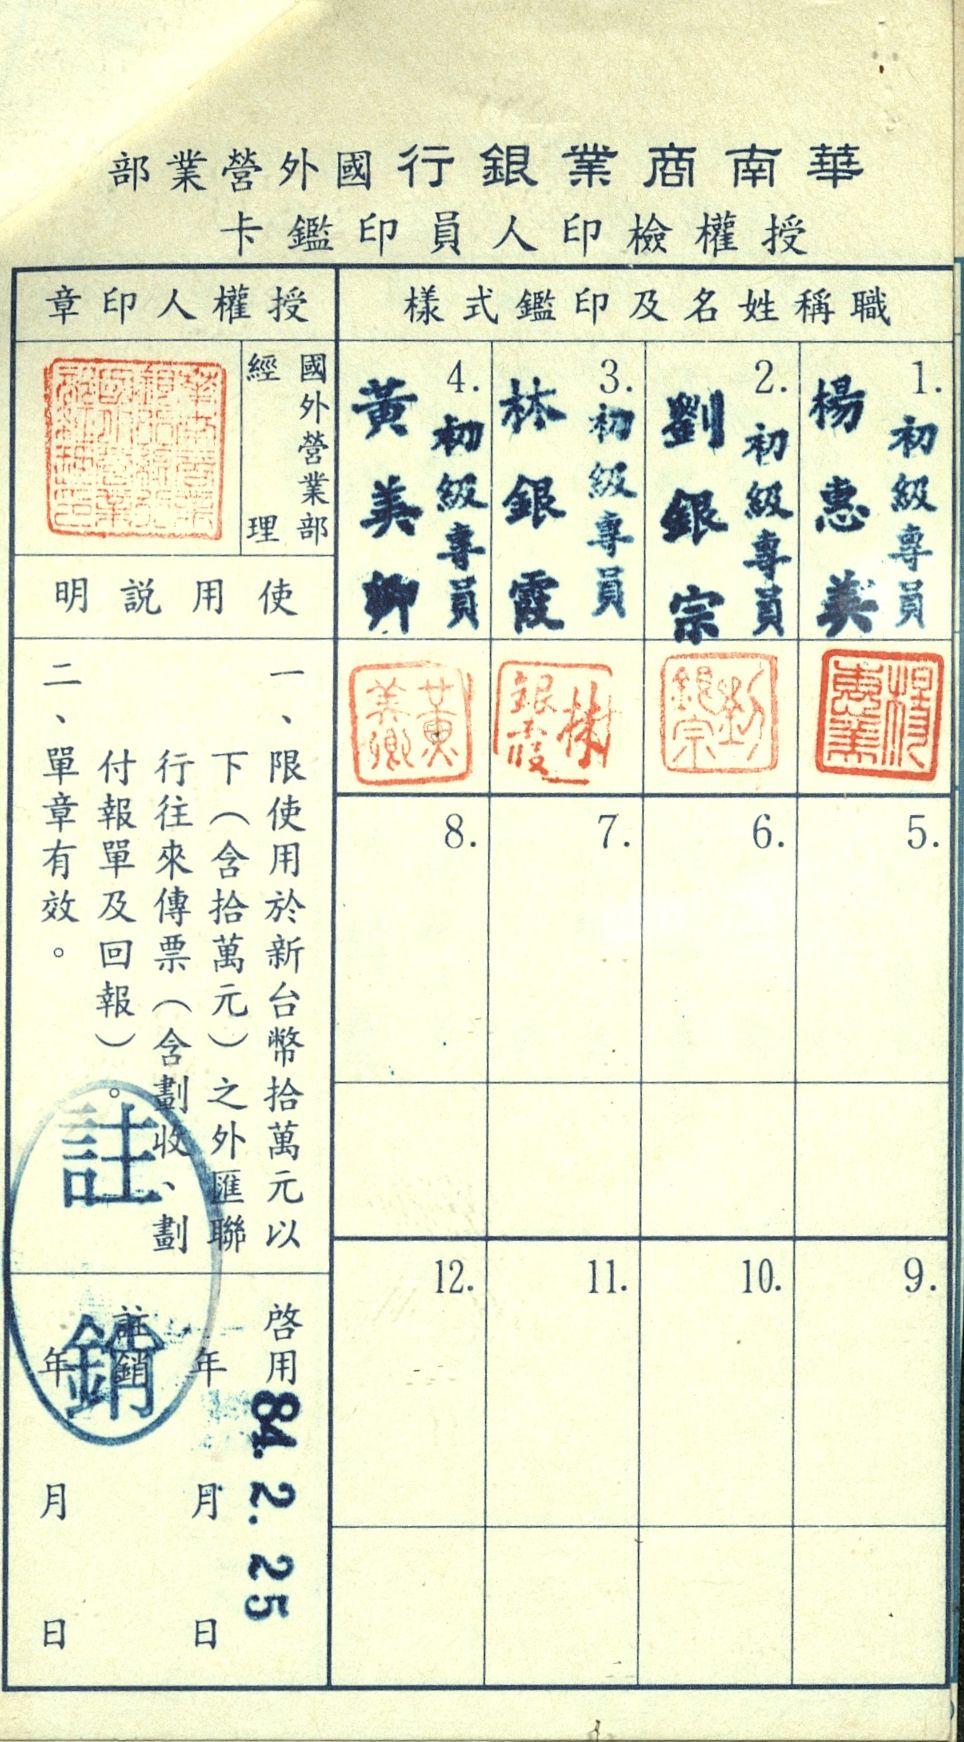 華南商業銀行國外營業部
授權檢印人員印鑑卡
職稱姓名及印鑑式樣
1.
初級專員
楊惠美
楊惠美
2.
初級專員
劉銀宗
劉銀宗
3.
初級專員
林銀霞
林銀霞
4.
初級專員
黃美卿
黃美卿
5.
6.
7.
8.
9.
10.
11.
12.
授權人印章
國外營業部
經理
使用說明
一、限使用於新台幣拾萬元以
下（含拾萬元）之外匯聯
行往來傳票（含劃收、劃
付報單及回報）。
二、單章有效。
啓用
84.2.25
年月日
註銷
年月日
註銷